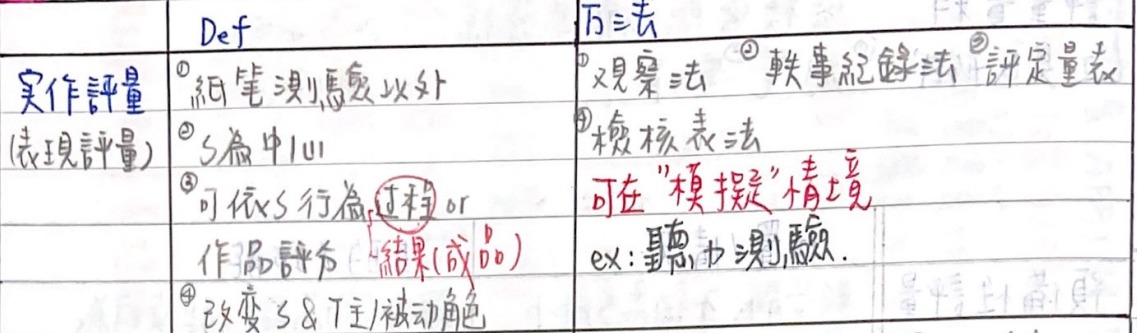 Def
方法
实作評量
(表現評量)
①紙笔測驗以外
②S為中心
③可依S行為过程or
作品評分 結果(成品)
④改变S&T主/被动角色
①观察法 ②軼事紀錄法 ③評定量表
④檢核表法
可在"模擬"情境
ex:聽力測驗.